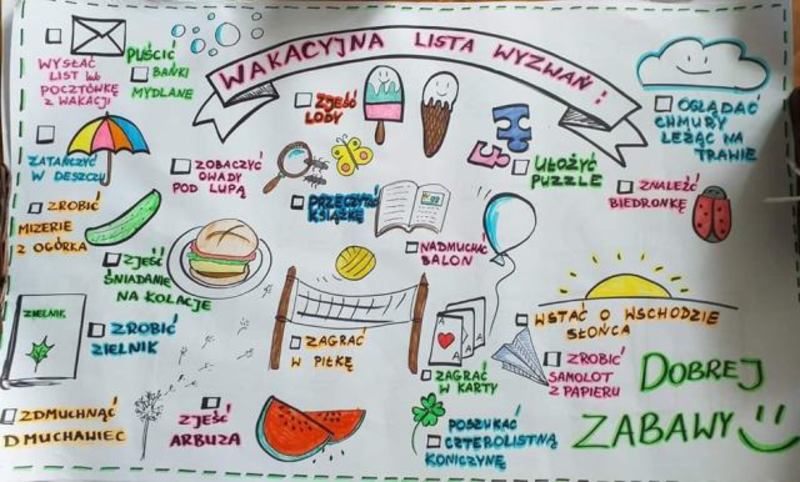 WAKACYJNA LISTA WYZWAŃ:
WYSŁAĆ
LIST lub
POCZTÓWKĘ
Z WAKACJI
PUŚCIĆ
BAŃKI
MYDLANE
ZJEŚĆ
LODY
OGLĄDAĆ
CHMURY
LEŻĄC NA
TRAWIE
ZATAŃCZYĆ
W DESZCZU
ZOBACZYĆ
OWADY
POD LUPĄ
UŁOŻYĆ
PUZZLE
ZNALEŹĆ
BIEDRONKĘ
PRZECZYTAĆ
KSIĄŻKĘ
ZROBIĆ
MIZERIE
Z OGÓRKA
NADMUCHAĆ
BALON
ZJEŚĆ
ŚNIADANIE
NA KOLACJE
ZIELNIK
ZROBIĆ
ZIELNIK
ZAGRAĆ
W PIŁKĘ
A
A
A
ZAGRAĆ
W KARTY
WSTAĆ O WSCHODZIE
SŁOŃCA
ZROBIĆ
SAMOLOT
Z PAPIERU
ZDMUCHNĄĆ
DMUCHAWIEC
ZJEŚĆ
ARBUZA
POSZUKAĆ
CZTEROLISTNĄ
KONICZYNĘ
DOBREJ
ZABAWY